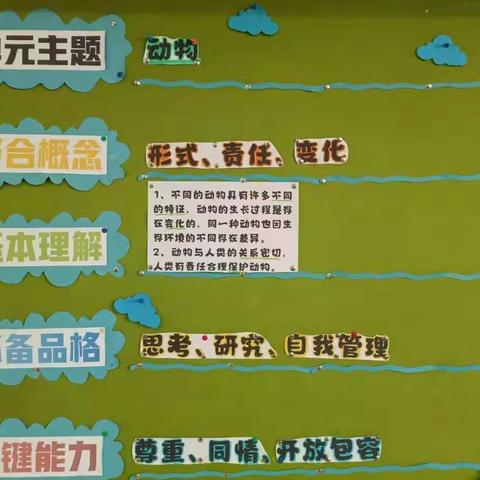 单元主题
动物
合概念
形式、责任、变化
基本理解
1、不同的动物具有许多不同
的特征，动物的生长过程是存
在变化的，同一种动物也因生
存环境的不同存在差异。
2、动物与人类的关系密切，
人类有责任合理保护动物。
备品格
思考、研究、自我管理
键能力
尊重、同情、开放包容